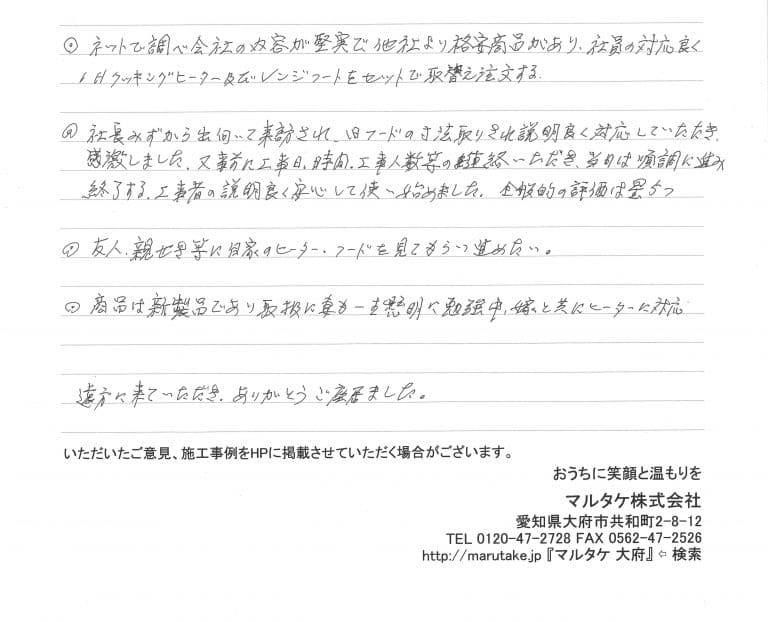 ⊙ ネットで調べ会社の内容が堅実で他社より格安商品があり、社員の対応良く
IHクッキングヒーター及びレンジフードをセットで取替え注文する。
⊙ 社長みずから出向いて来訪され、旧フードの寸法取りされ説明良く対応していただき、
感激しました。又事前に工事日、時間、工事人数等の連絡いただき、当日は順調に進み
終了する。工事者の説明良く安心して使い始めました。全般的の評価は星5つ
⊙ 友人、親せき等に自家のヒーター・フードを見てもらって進めたい。
⊙ 商品は新製品であり取扱に妻も一生懸明に勉強中、嫁と共にヒーターに対応
遠方に来ていただき、ありがとうご座居ました。
いただいたご意見、施工事例をHPに掲載させていただく場合がございます。
おうちに笑顔と温もりを
マルタケ株式会社
愛知県大府市共和町2-8-12
TEL 0120-47-2728 FAX 0562-47-2526
http://marutake.jp 『マルタケ 大府』⇦ 検索